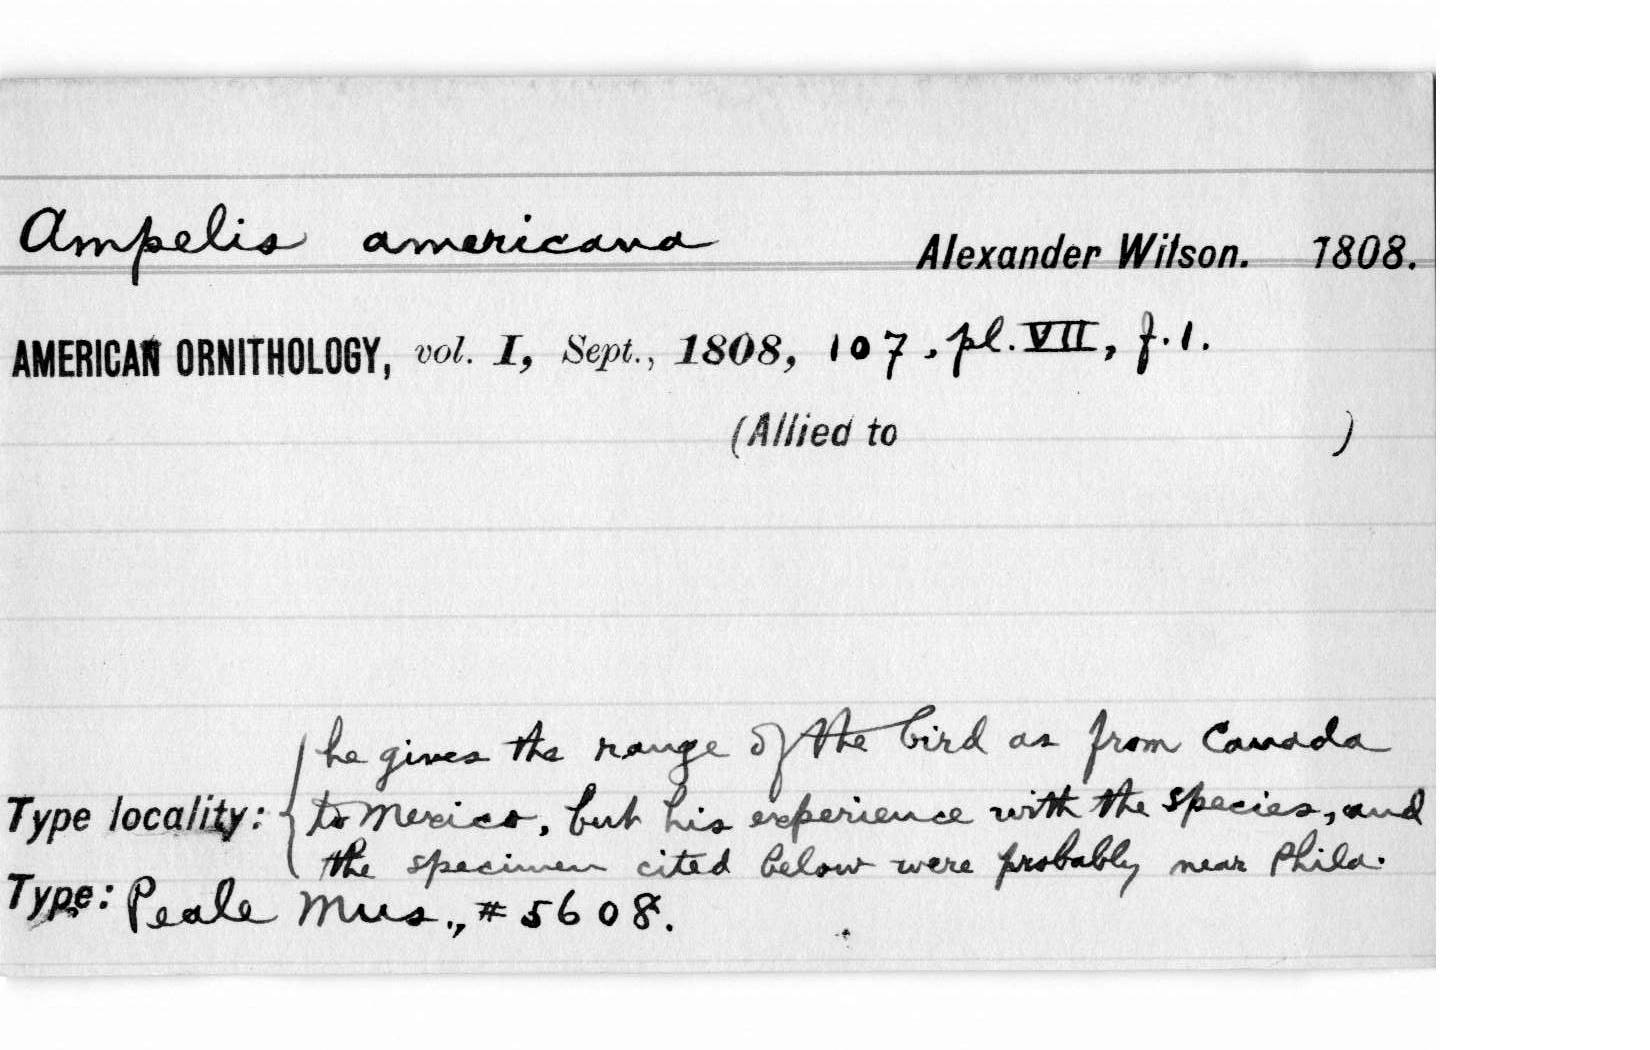 Ampelis americana Alexander Wilson. 1808.
AMERICAN ORNITHOLOGY, vol. I, Sept., 1808, 107, pl. VII, f. 1.
(Allied to )
he gives the range of the bird as from Canada
Type locality: to Mexico, but his experience with the species, and
the specimen cited below were probably near Phila.
Type: Peale Mus., #5608.